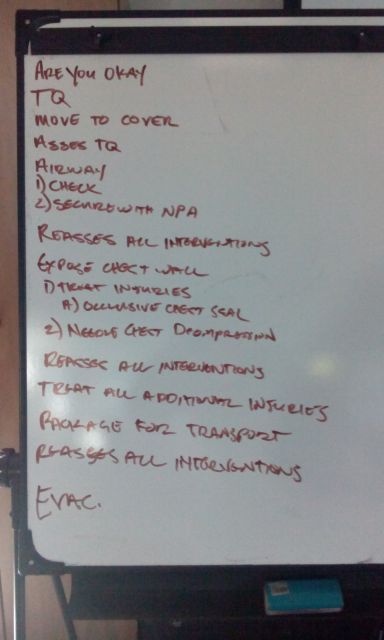 ARE YOU OKAY
TQ
MOVE TO COVER
ASSES TQ
AIRWAY
1) CHECK
2) SECURE WITH NPA
REASSES ALL INTERVENTIONS
EXPOSE CHEST WALL
1) TREAT INJURIES
A) OCCLUSIVE CHEST SEAL
2) NEEDLE CHEST DECOMPRESSION
REASSES ALL INTERVENTIONS
TREAT ALL ADDITIONAL INJURIES
PACKAGE FOR TRANSPORT
REASSES ALL INTERVENTIONS
EVAC.